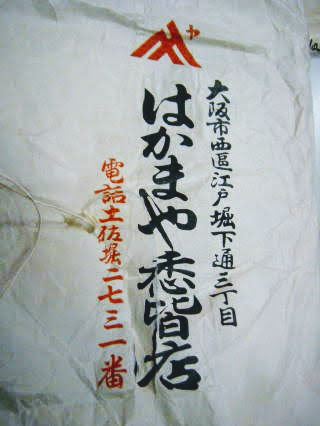 ヤ
大阪市西區江戸堀下通三丁目
はかまや悉皆店
電話土佐堀二七三一番